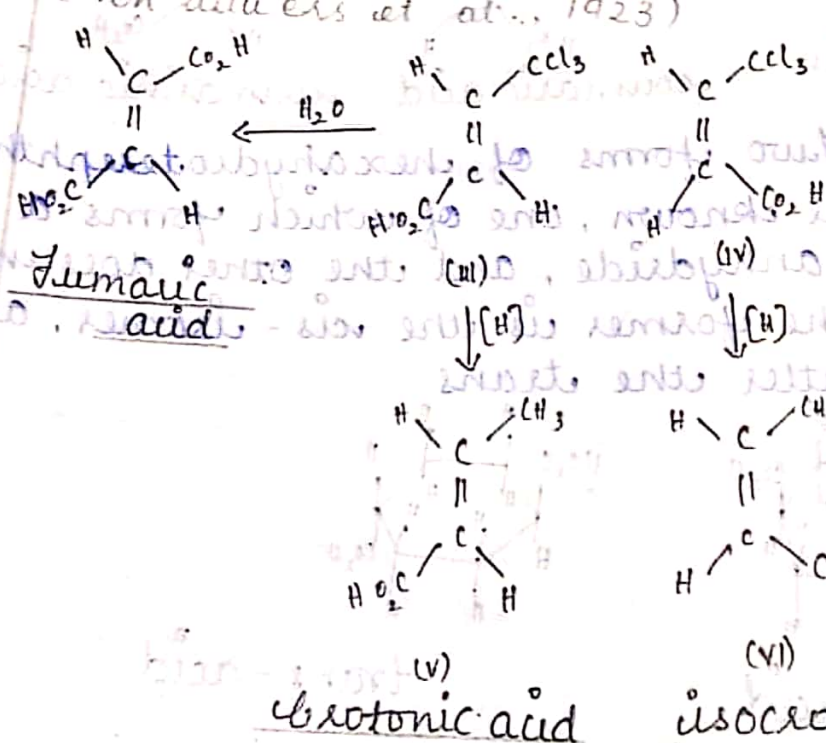 et al... 1923)
H CO2H
C
||
C
HO2C H
Fumaric
acid
H2O
H CCl3
C
||
C
HO2C H
(III)
[H]
H CCl3
C
||
C
H CO2H
(IV)
[H]
H CH3
C
||
C
HO2C H
(V)
Crotonic acid
H (CH
C
||
C
H C
(VI)
isocro